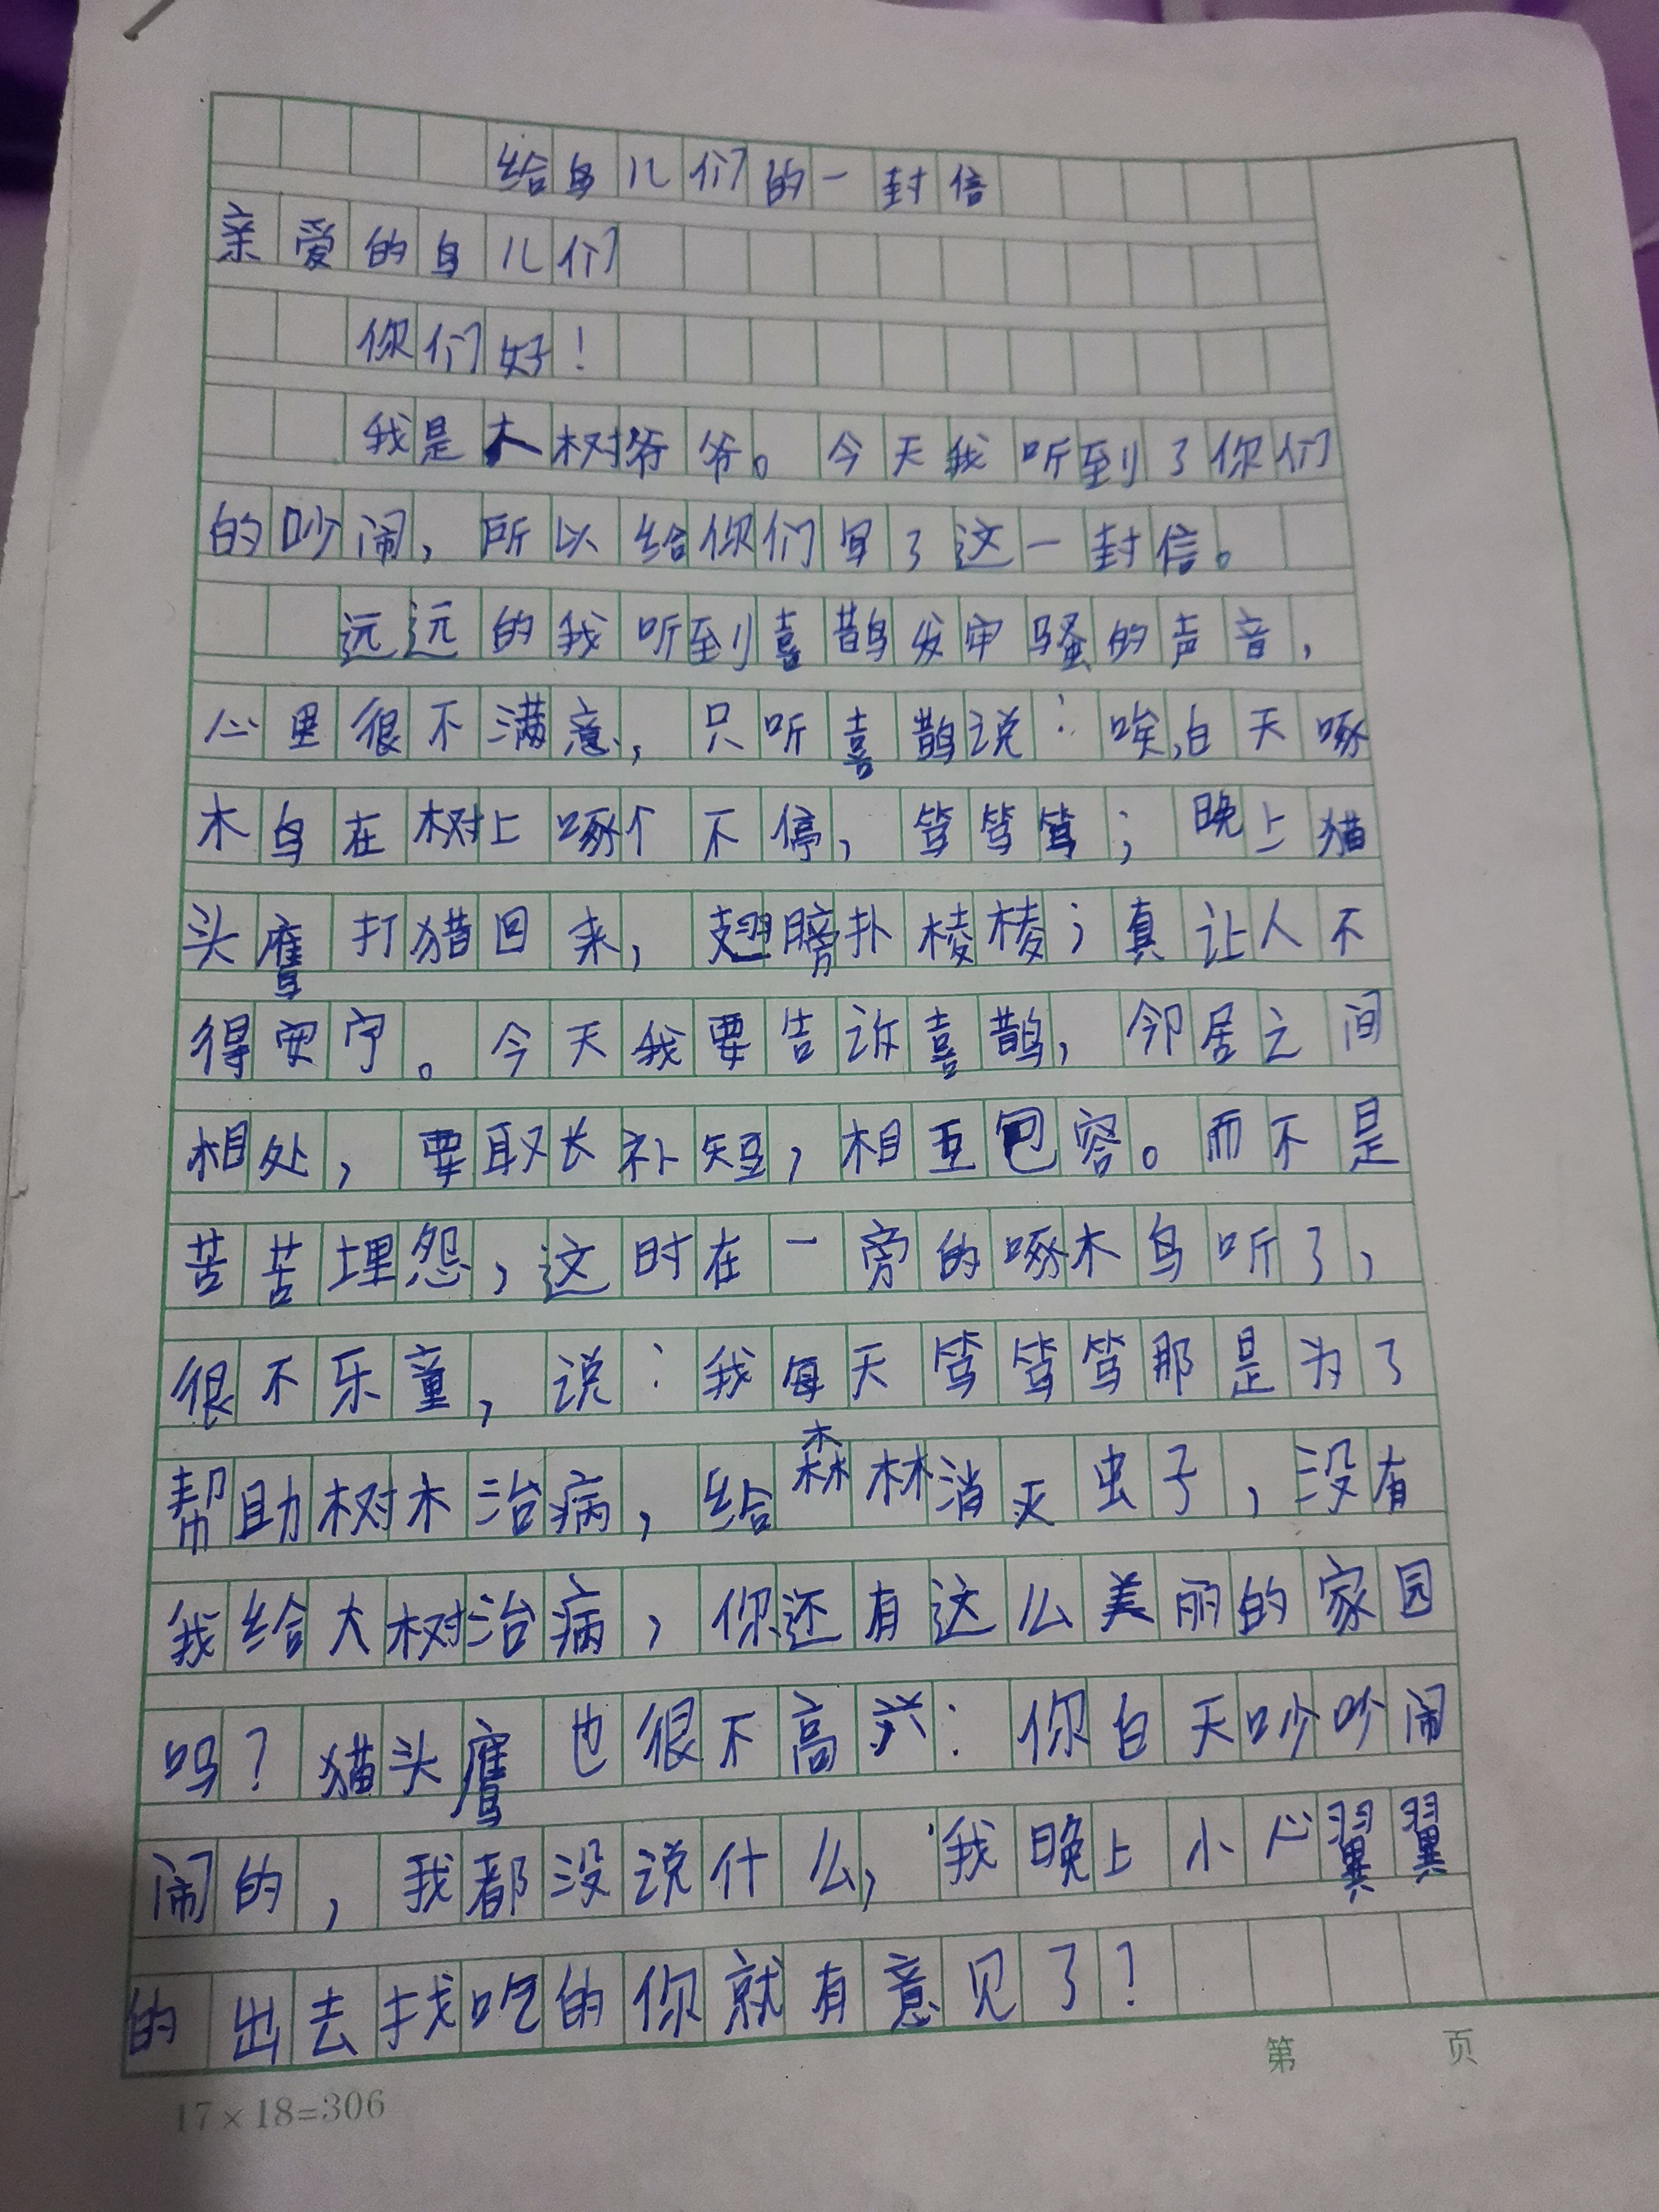 给鸟儿们的一封信
亲爱的鸟儿们
你们好！
我是大树爷爷。今天我听到了你们
的吵闹，所以给你们写了这一封信。
远远的我听到喜鹊发牢骚的声音，
心里很不满意，只听喜鹊说：唉，白天啄
木鸟在树上啄个不停，笃笃笃；晚上猫
头鹰打猎回来，翅膀扑棱棱；真让人不
得安宁。今天我要告诉喜鹊，邻居之间
相处，要取长补短，相互包容。而不是
苦苦埋怨，这时在一旁的啄木鸟听了，
很不乐童，说：我每天笃笃笃那是为了
帮助树木治病，给森林消灭虫子，没有
我给大树治病，你还有这么美丽的家园
吗？猫头鹰也很不高兴：你白天吵吵闹
闹的，我都没说什么，我晚上小心翼翼
的出去找吃的你就有意见了？
第 页
17×18=306